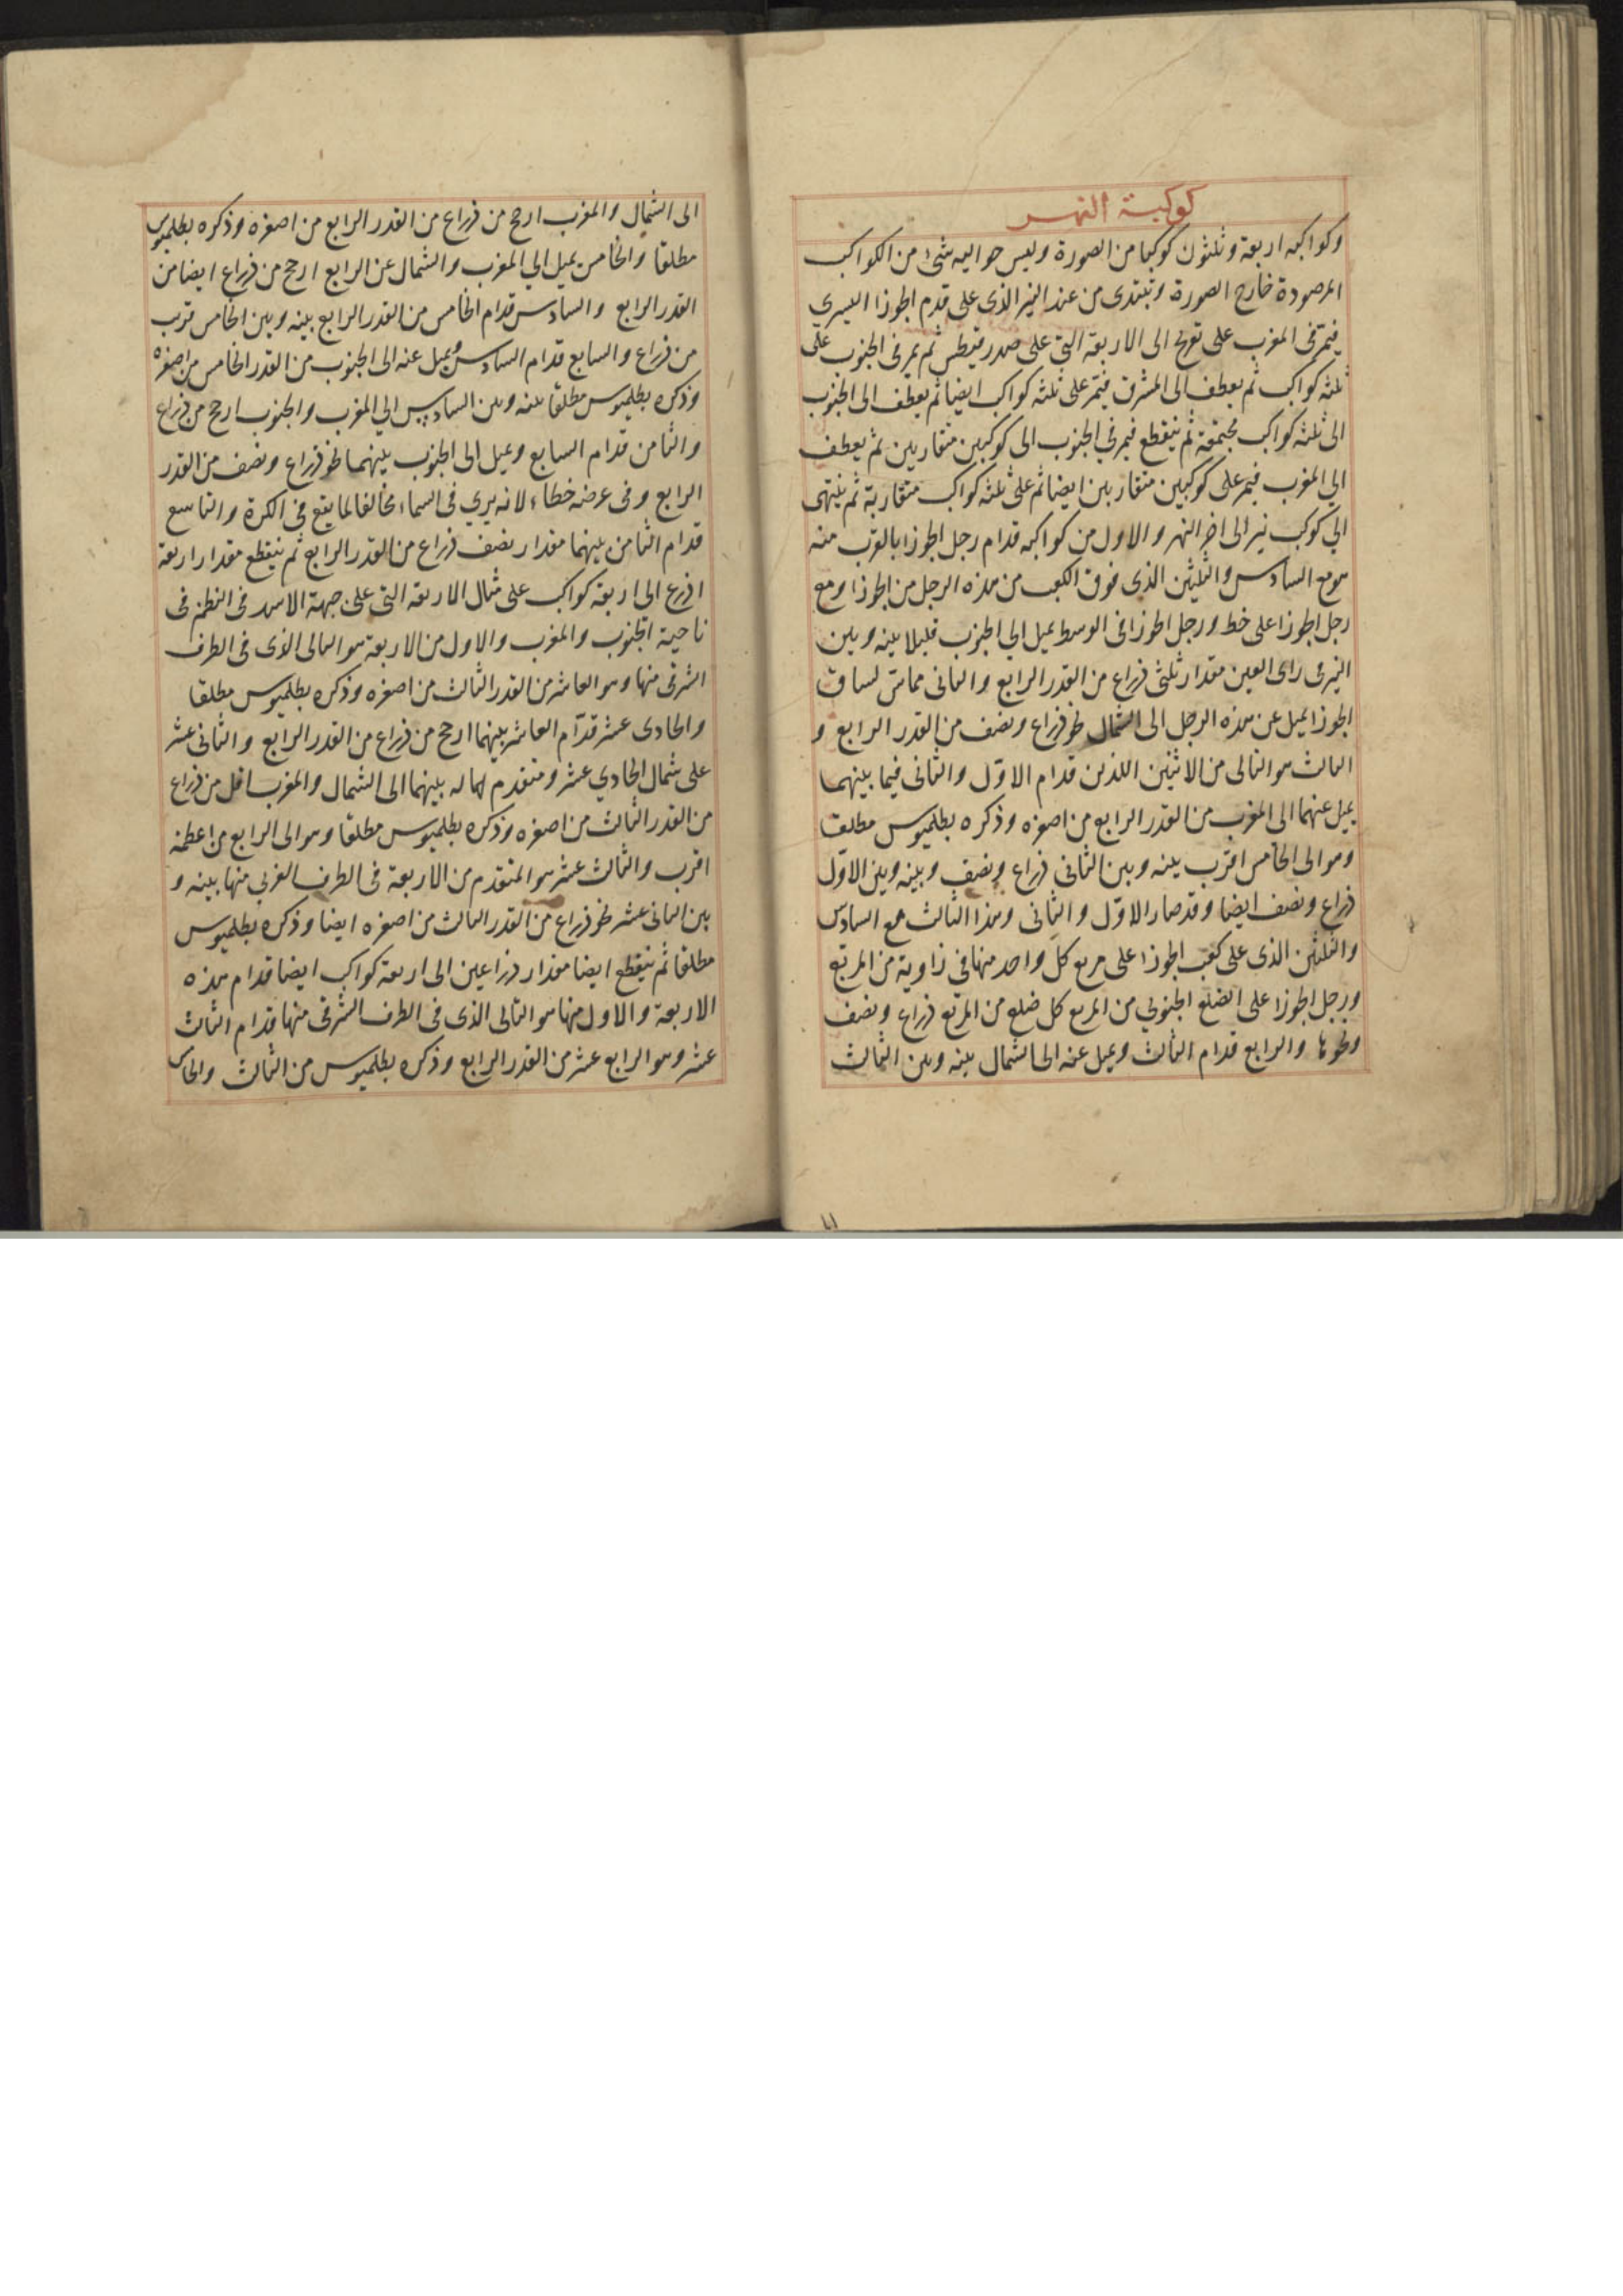 كوكبة النهر
وكواكبه اربعة وثلثون كوكبا من الصورة وليس حواليه شئ من الكواكب
المرصودة خارج الصورة وتبتدى من عند النير الذى على قدم الجوزا اليسري
فيمر فى المغرب على تعريج الى الاربعة التى على صدر قيطس ثم يمر فى الجنوب على
ثلثه كواكب ثم يعطف الى المشرق فيمر على ثلثه كواكب ايضا ثم يعطف الى الجنوب
الى ثلثه كواكب مجتمعة ثم ينقطع فيمر في الجنوب الى كوكبين متقاربين ثم يعطف
الي المغرب فيمر على كوكبين متقاربين ايضا ثم على ثلثه كواكب متقاربة ثم ينتهى
الي كوكب نير الى اخر النهر والاول من كواكبه قدام رجل الجوزا بالقرب منه
مع السادس والثلثين الذى فوق الكعب من هذه الرجل من الجوزا ومع
رجل الجوزا على خط ورجل الجوزا فى الوسط يميل الي الجنوب قليلا بينه وبين
النير فى راى العين مقدار ثلثى ذراع من القدر الرابع والثانى مماس لساق
الجوزا يميل عن هذه الرجل الى الشمال نحو ذراع ونصف من القدر الرابع و
الثالث هو التالى من الاثنين اللذين قدام الاوّل والثانى فيما بينهما
يميل عنهما الى المغرب من القدر الرابع من اصغره وذكره بطلميوس مطلقا
وهو الى الخامس اقرب بينه وبين الثانى ذراع ونصف وبينه وبين الاوّل
ذراع ونصف ايضا وقد صار الاوّل والثانى وهذا الثالث مع السادس
والثلثين الذى على كعب الجوزا على مربع كل واحد منها في زاوية من المربع
ورجل الجوزا على الضلع الجنوبي من المربع كل ضلع من المربع ذراع ونصف
ونحوها والرابع قدام الثالث ويميل عنه الى الشمال بينه وبين الثالث
الى الشمال والمغرب ارجح من ذراع من القدر الرابع من اصغره وذكره بطلميوس
مطلقا والخامس يميل الي المغرب والشمال عن الرابع ارجح من ذراع ايضا من
القدر الرابع والسادس قدام الخامس من القدر الرابع بينه وبين الخامس قريب
من ذراع والسابع قدام السادس ويميل عنه الى الجنوب من القدر الخامس من اصغره
وذكره بطلميوس مطلقا بينه وبين السادس الي المغرب والجنوب ارجح من ذراع
والثامن قدام السابع ويميل الى الجنوب بينهما نحو ذراع ونصف من القدر
الرابع وفى عرضه خطاء لانه يري فى السماء مخالفا لما يقع فى الكرة والتاسع
قدام الثامن بينهما مقدار نصف ذراع من القدر الرابع ثم ينقطع مقدار اربعة
اذرع الى اربعة كواكب على مثال الاربعه التى على جبهة الاسد فى النظم فى
ناحية الجنوب والمغرب والاول من الاربعة هو التالى الذى فى الطرف
الشرقى منها وهو العاشر من القدر الثالث من اصغره وذكره بطلميوس مطلقا
والحادى عشر قدّام العاشر بينهما ارجح من ذراع من القدر الرابع والثانى عشر
على شمال الحادي عشر ومتقدم له بينهما الى الشمال والمغرب اقل من ذراع
من القدر الثالث من اصغره وذكره بطلميوس مطلقا وهو الى الرابع من اعظمه
اقرب والثالث عشر هو المتقدم من الاربعة فى الطرف الغربي منها بينه و
بين الثانى عشر نحو ذراع من القدر الثالث من اصغره ايضا وذكره بطلميوس
مطلقا ثم ينقطع ايضا مقدار ذراعين الى اربعة كواكب ايضا قدام هذه
الاربعة والاول منها هو التالى الذى فى الطرف الشرقى منها قدام الثالث
عشر وهو الرابع عشر من القدر الرابع وذكره بطلميوس من الثالث والخامس